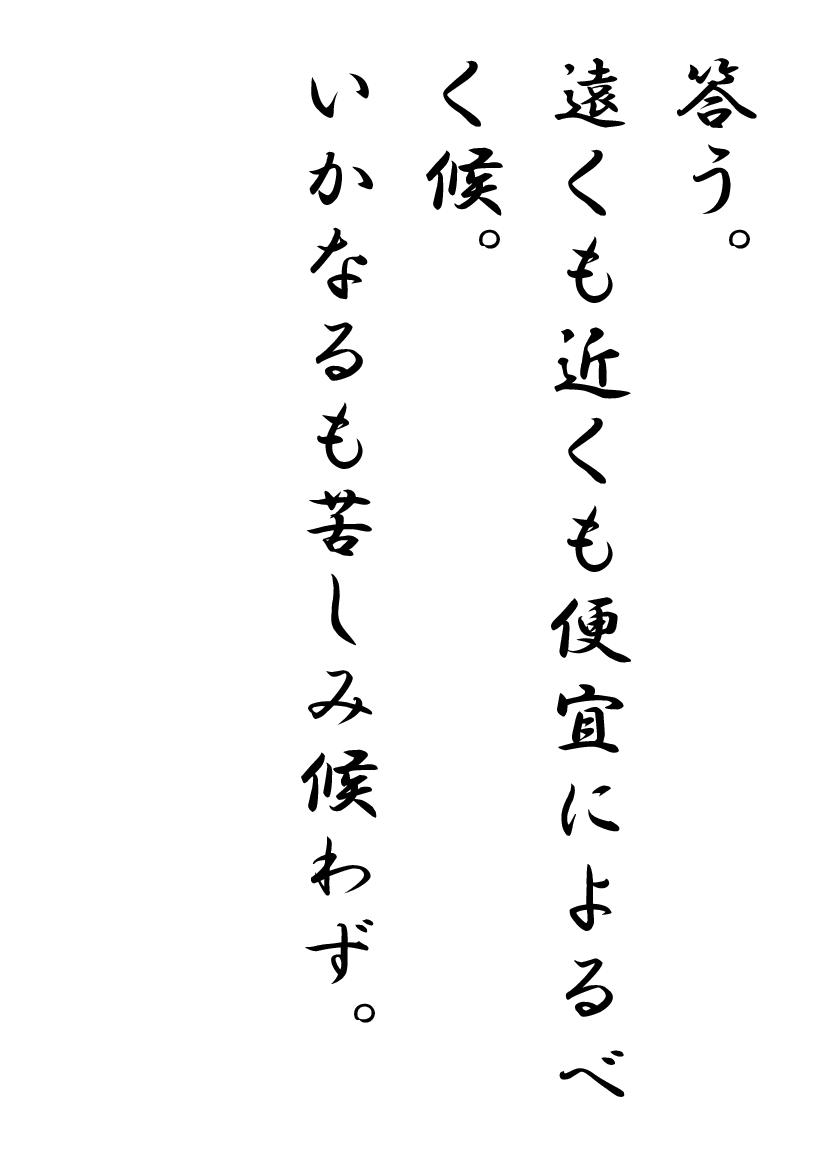 答う。
遠くも近くも便宜によるべ
く候。
いかなるも苦しみ候わず。